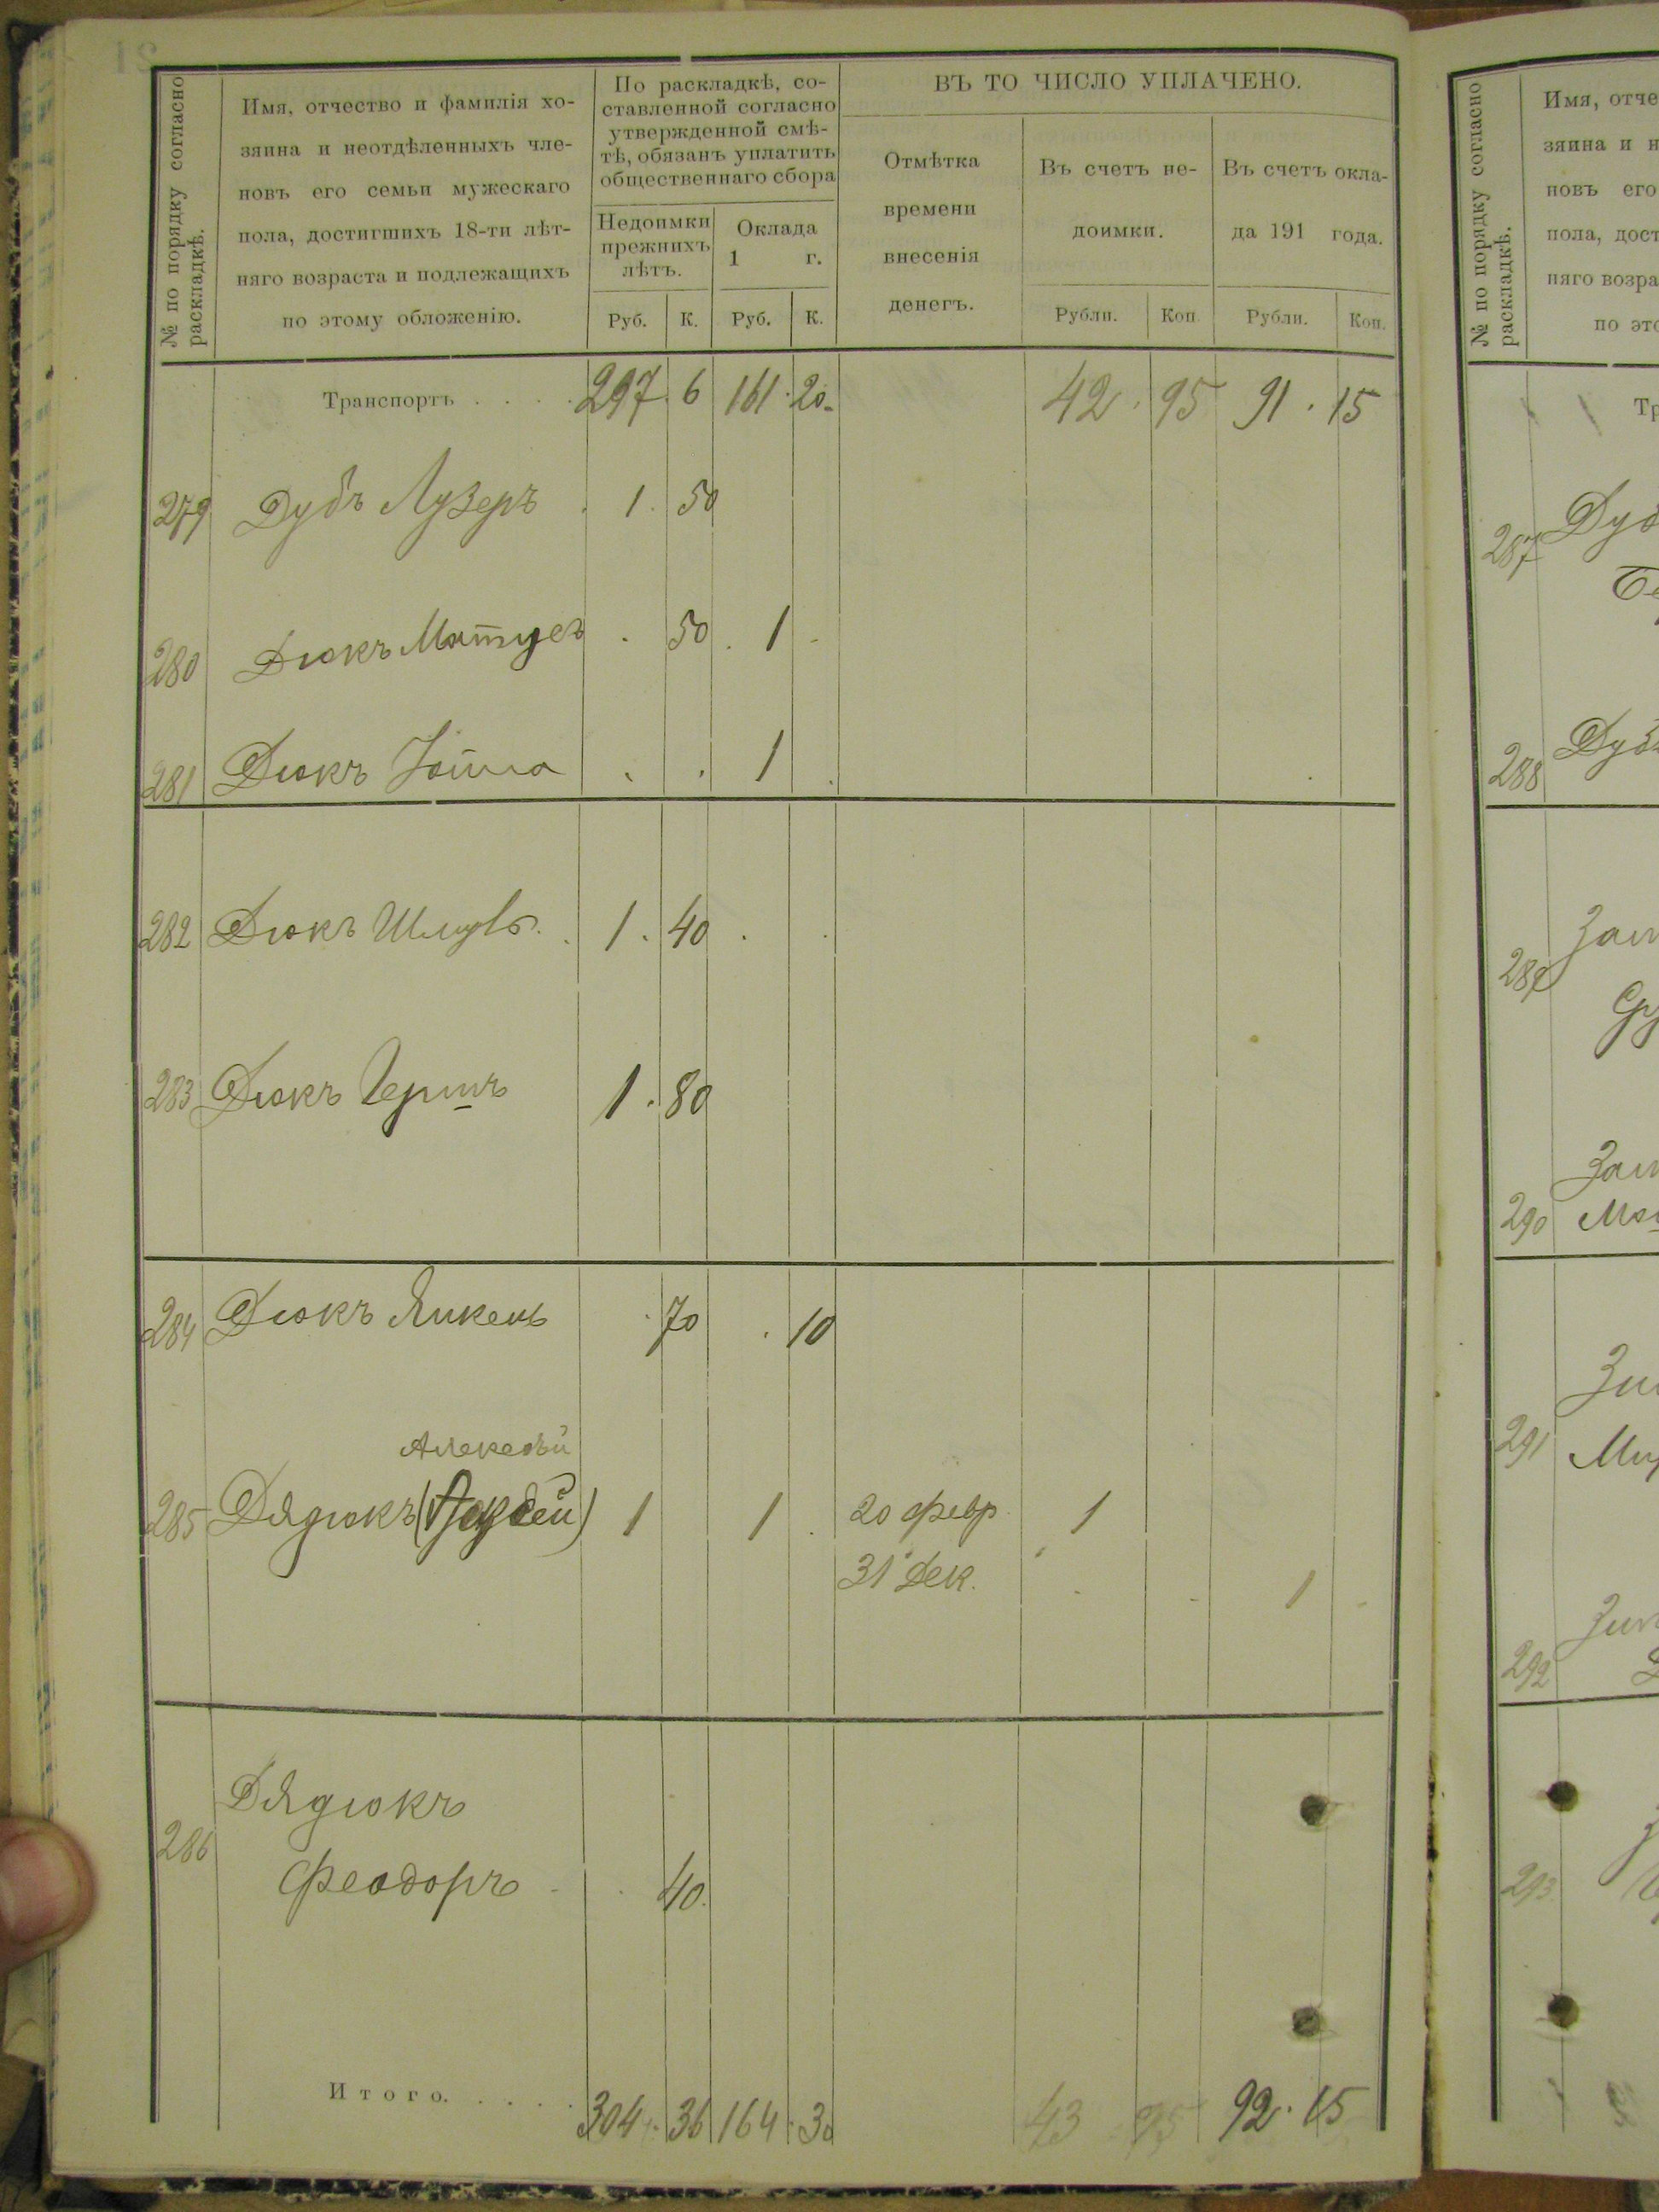 № по порядку согласно раскладкѣ.
Имя, отчество и фамилія хо-
зяина и неотдѣленныхъ чле-
новъ его семьи мужескаго
пола, достигшихъ 18-ти лѣт-
няго возраста и подлежащихъ
по этому обложенію.
По раскладкѣ, со-
ставленной согласно
утвержденной смѣ-
тѣ, обязанъ уплатить
общественнаго сбора
Недоимки
прежнихъ
лѣтъ.
Оклада
1 г.
Руб. К. Руб. К.
ВЪ ТО ЧИСЛО УПЛАЧЕНО.
Отмѣтка
времени
внесенія
денегъ.
Въ счетъ не-
доимки.
Въ счетъ окла-
да 191 года.
Рубли. Коп. Рубли. Коп.
Транспортъ . . . . 297 6 161 20 42 95 91 15
279 Дубъ Лузеръ 1 50
280 Дюкъ 50 1
281 Дюкъ 1
282 Дюкъ 1 40
283 Дюкъ Гершъ 1 80
284 Дюкъ Янкель 70 10
Алексѣй
285 Дядюкъ 1 1 20 февр. 1
31 дек. 1
Дядюкъ
286
Феодоръ 40
Итого. . . . . 304 36 164 30 43 95 92 15
№ по порядку согласно раскладкѣ.
Имя, отче
зяина и н
новъ его
пола, дост
няго возра
по это
Тр
287 Дуб
288 Дуб
289
290
291
292
293